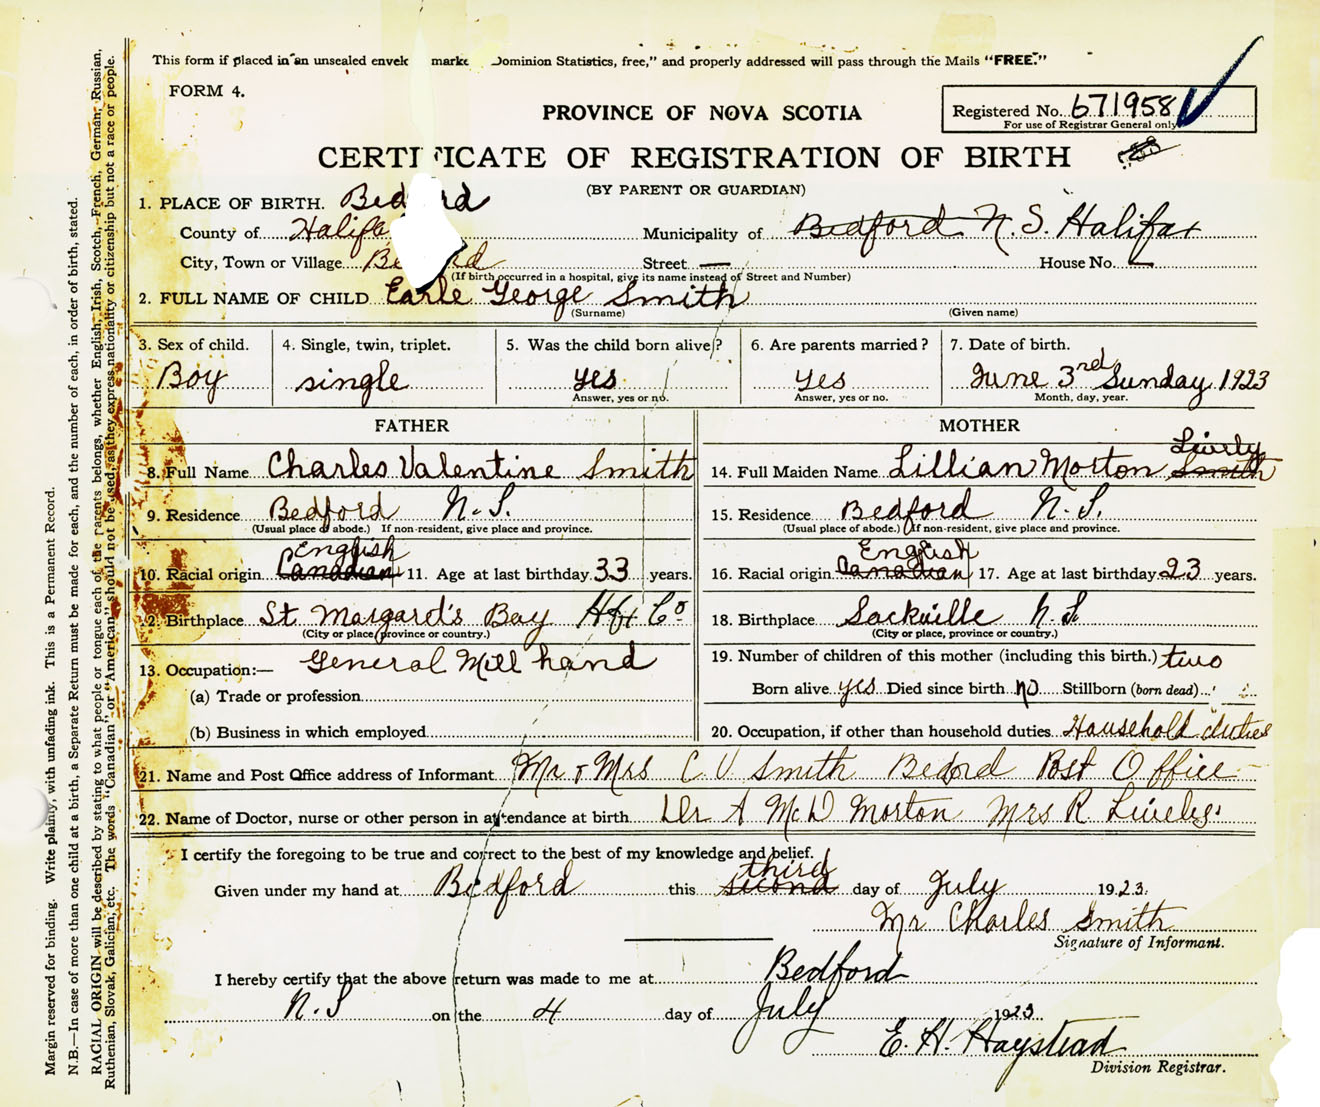 This form if placed in an unsealed envelo marke Dominion Statistics, free," and properly addressed will pass through the Mails "FREE."
FORM 4.
PROVINCE OF NOVA SCOTIA
Registered No. 671958
For use of Registrar General only
CERTIFICATE OF REGISTRATION OF BIRTH
(BY PARENT OR GUARDIAN)
1. PLACE OF BIRTH. Bedford
County of Halifa Municipality of Bedford N.S. Halifax
City, Town or Village Bedford Street — House No. —
(If birth occurred in a hospital, give its name instead of Street and Number)
2. FULL NAME OF CHILD Earle George Smith
(Surname) (Given name)
3. Sex of child. 4. Single, twin, triplet. 5. Was the child born alive? 6. Are parents married? 7. Date of birth.
Boy single yes yes June 3rd Sunday 1923
Answer, yes or no. Answer, yes or no. Month, day, year.
FATHER MOTHER
8. Full Name Charles Valentine Smith 14. Full Maiden Name Lillian Morton Smith Lively
9. Residence Bedford N.S. 15. Residence Bedford N.S.
(Usual place of abode.) If non-resident, give place and province. (Usual place of abode.) If non-resident, give place and province.
English English
10. Racial origin Canadian 11. Age at last birthday 33 years. 16. Racial origin Canadian 17. Age at last birthday 23 years.
12. Birthplace St. Margard's Bay Hfx Co 18. Birthplace Sackville N.S.
(City or place, province or country.) (City or place, province or country.)
13. Occupation:— General Mill hand 19. Number of children of this mother (including this birth.) two
(a) Trade or profession Born alive yes Died since birth no Stillborn (born dead)
(b) Business in which employed 20. Occupation, if other than household duties Household duties
21. Name and Post Office address of Informant Mr & Mrs C V Smith Bedford Post Office
22. Name of Doctor, nurse or other person in attendance at birth Dr A McD Morton Mrs R Lively
I certify the foregoing to be true and correct to the best of my knowledge and belief.
third
Given under my hand at Bedford this second day of July 1923.
Mr Charles Smith
Signature of Informant.
I hereby certify that the above return was made to me at Bedford
N.S on the 4 day of July 1923
E. H. Haystead
Division Registrar.
Margin reserved for binding. Write plainly, with unfading ink. This is a Permanent Record.
N.B.—In case of more than one child at a birth, a Separate Return must be made for each, and the number of each, in order of birth, stated.
RACIAL ORIGIN will be described by stating to what people or tongue each of the parents belongs, whether English, Irish, Scotch, French, German, Russian,
Ruthenian, Slovak, Galician, etc. The words "Canadian" or "American" should not be used, as they express nationality or citizenship but not a race or people.